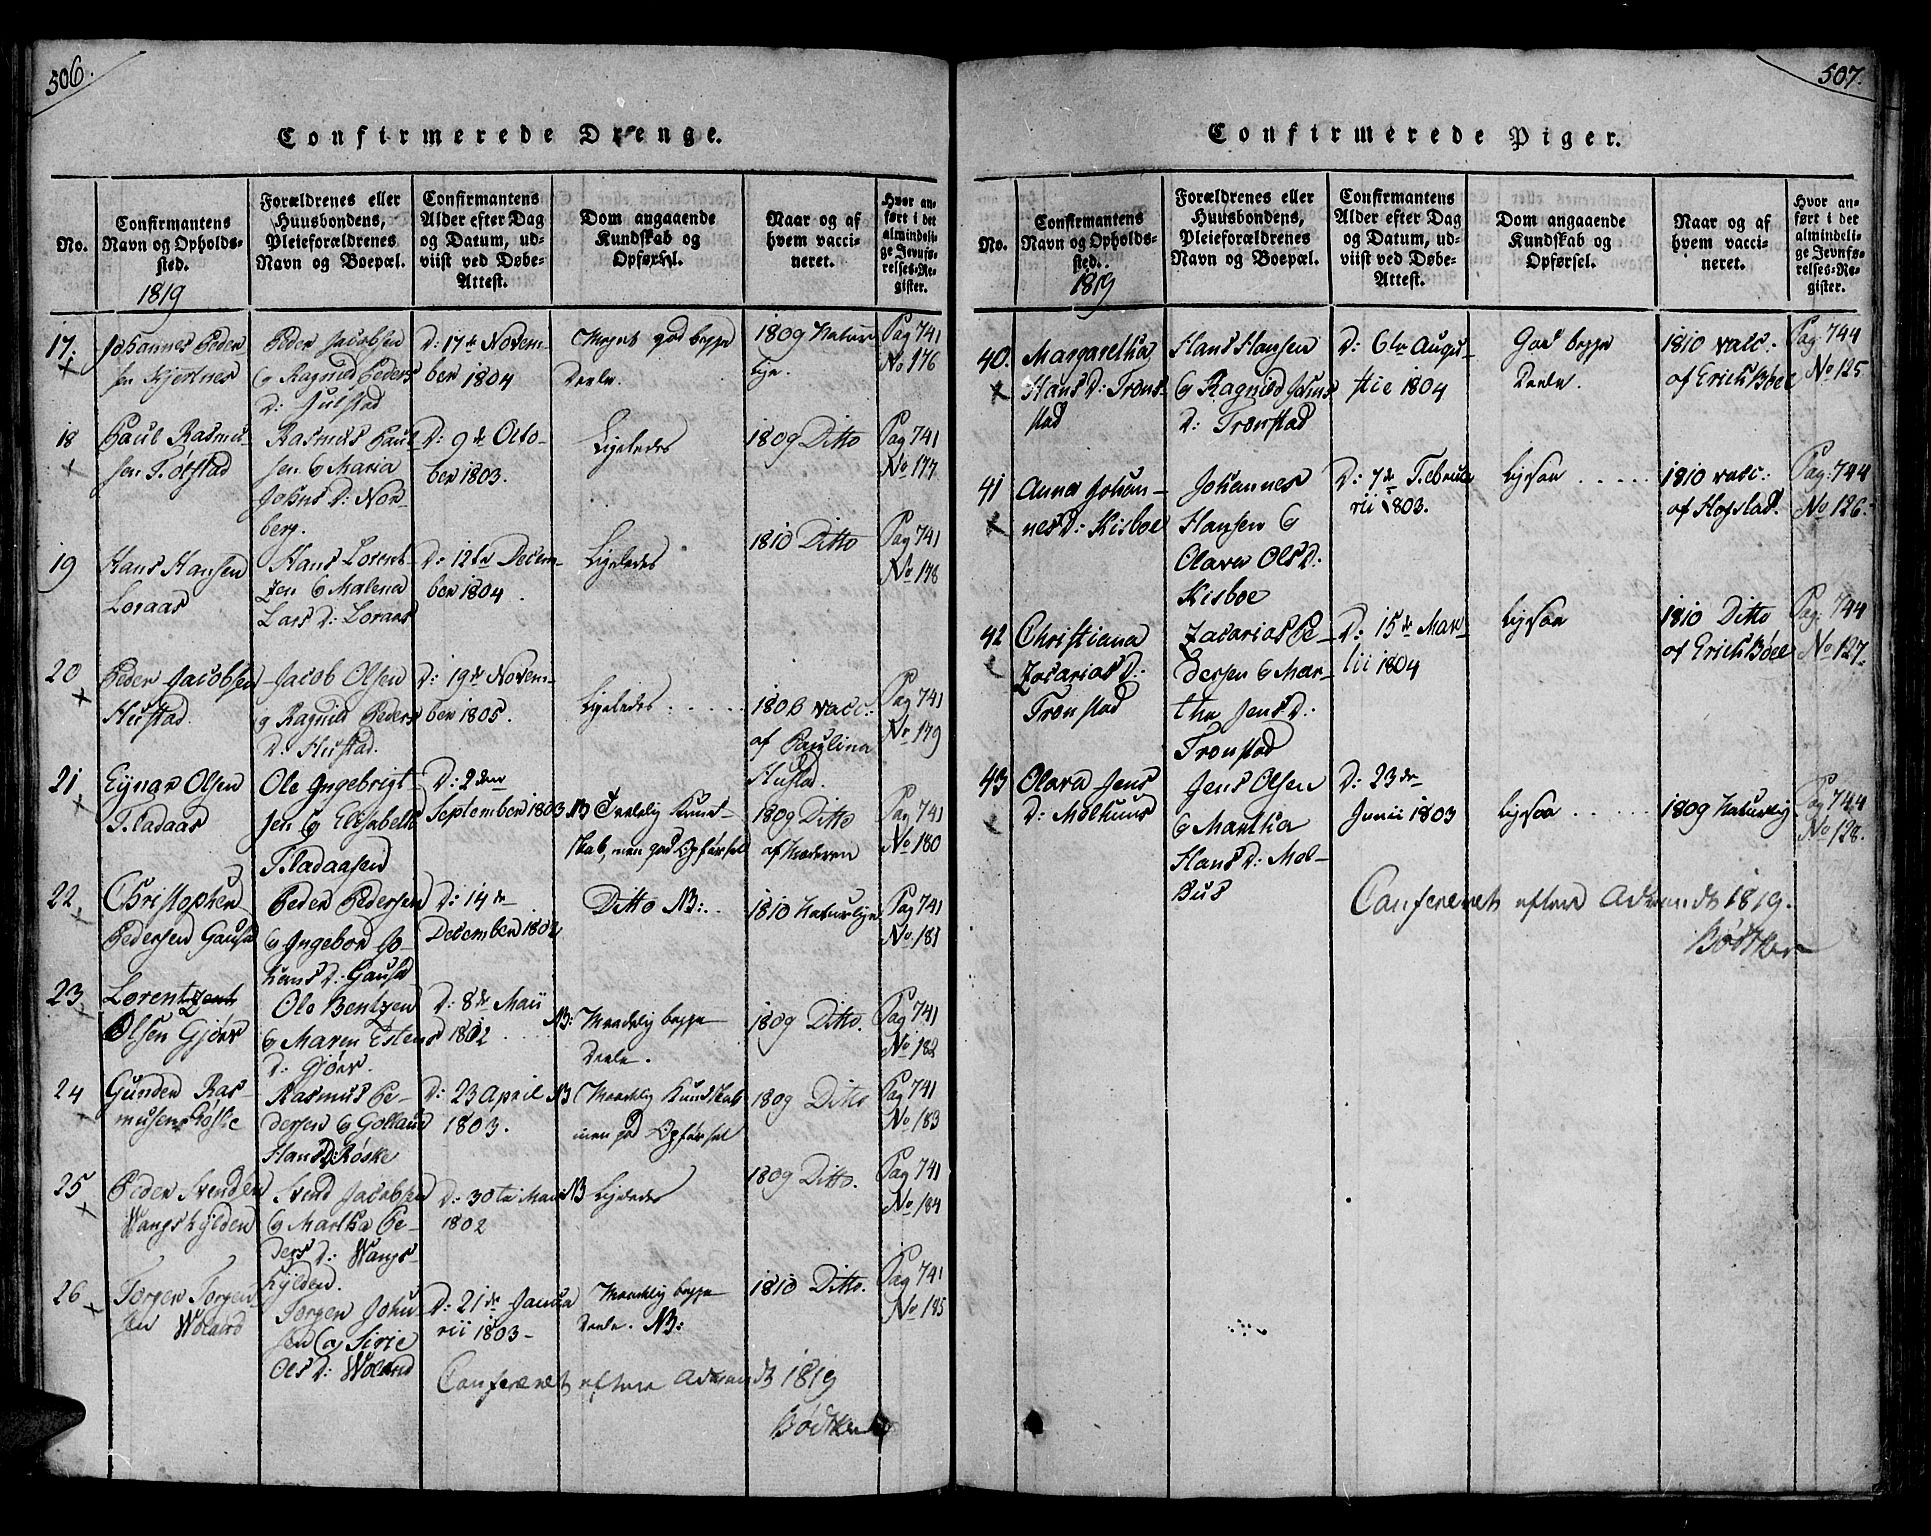 506.
Confirmerede Drenge.
No.
Confirmantens
Navn og Opholds-
sted.
1819
Forældrenes eller
Huusbondens,
Pleieforældrenes
Navn og Boepæl.
Confirmantens
Alder efter Dag
og Datum, ud-
viist ved Døbe-
Attest.
Dom angaaende
Kundskab og
Opførsel.
Naar og af
hvem vacci-
neret.
Hvor an-
ført i det
almindeli-
ge Jevnfø-
relses-Re-
gister.
17.
Johannes Peder
sen Hjertnes
Peder Jacobsen
og Ragnild Peders
D: Julstad
D: 17de Novem-
ber 1804
Meget god begge
Deele.
1809 Natur
lig.
Pag 741
No 176
18
Paul Rasmu-
sen
Rasmus Paul
sen og Maria
Johns D: Nor-
berg.
D: 9de Octo-
ber 1803.
Ligeledes
1809 Ditto
Pag 741
No 177
19
Hans Hansen
Loraas
Hans Lorent-
zen og Malena
Lars D: Loraas
D: 12te Decem-
ber 1804.
Ligeledes
1810 Ditto
Pag 741
No 178
20
Peder Jacobsen
Hustad.
Jacob Olsen
og Ragnild Peders
D: Hustad.
D: 19de Novem-
ber 1805.
Ligeledes
1808 vacc:
af Paulina
Hustad.
Pag 741
No 179
21
Eynar Olsen
Fladaas
Ole Ingebrigt
sen og Elisabeth
Fladaasen
D: 2den
September 1803
NB Kund-
skab, men god Opførsel
1809 Ditto
af Moderen
Pag 741
No 180
22
Christopher
Pedersen Gausa
Peder Pedersen
og Ingebor Jo-
hans D: Gausa
D: 14de
December 1802
Ditto NB:
1810 Naturlig
Pag 741
No 181
23
Lorentz
Olsen Gjørv
Ole Bentzen
og Maren Estens
D: Gjørv.
D: 8de Maii
1802
NB: Maadelig begge
Deele.
1809 Ditto.
Pag 741
No 182
24
Gunder Ras-
musen Røske
Rasmus Pe-
dersen og Gollaug
Hans D: Røske
D: 23 April
1803.
NB Maadelig Kundskab
men god Opførsel
1809 Ditto
Pag 741
No 183
25
Peder Svendsen
Wangshylden
Svend Jacobsen
og Martha Pe-
ders D: Wangs-
hylden.
D: 30te Maii
1802
NB Ligeledes
1809 Ditto.
Pag 741
No 184
26
Torger Torger
sen Woland
Torger John
sen og Sirie
Ols D: Woland
D: 21de Janua
rii 1803-
Maadelig begge
Deele. NB:
1810 Ditto.
Pag 741
No 185
Confereret
1819
Bødtker
507.
Confirmerede Piger.
No.
Confirmantens
Navn og Opholds-
sted.
1819
Forældrenes eller
Huusbondens,
Pleieforældrenes
Navn og Boepæl.
Confirmantens
Alder efter Dag
og Datum, ud-
viist ved Døbe-
Attest.
Dom angaaende
Kundskab og
Opførsel.
Naar og af
hvem vacci-
neret.
Hvor an-
ført i det
almindeli-
ge Jevnfø-
relses-Re-
gister.
40.
Margaretha
Hans D: Tron-
stad
Hans Hansen
og Ragnild Johns
D: Tronstad
D: 6te Augu-
stie 1804
God begge
Deele.
1810 vacc:
af Erich Bøe
Pag: 744
No 125
41
Anna Johan-
nes D: Kisboe
Johannes
Hansen og
Olava Ols D:
Kisboe
D: 7de Februa
rii 1803.
ligesaa
1810 vacc:
af Hofstad.
Pag: 744
No 126.
42
Christiana
Zacarias D:
Tronstad
Zacarias Pe-
dersen og Mar-
tha Jens D:
Tronstad
D: 15de Mar-
tii 1804
ligesaa
1810 Ditto
af Erich Bøe
Pag: 744
No 127.
43
Olava Jens
D: Molhuus
Jens Olsen
og Martha
Hans D: Mol-
hus
D: 23de
Junii 1803
ligesaa
1809 Naturlig
Pag: 744
No 128.
Confereret
1819.
Bødtker